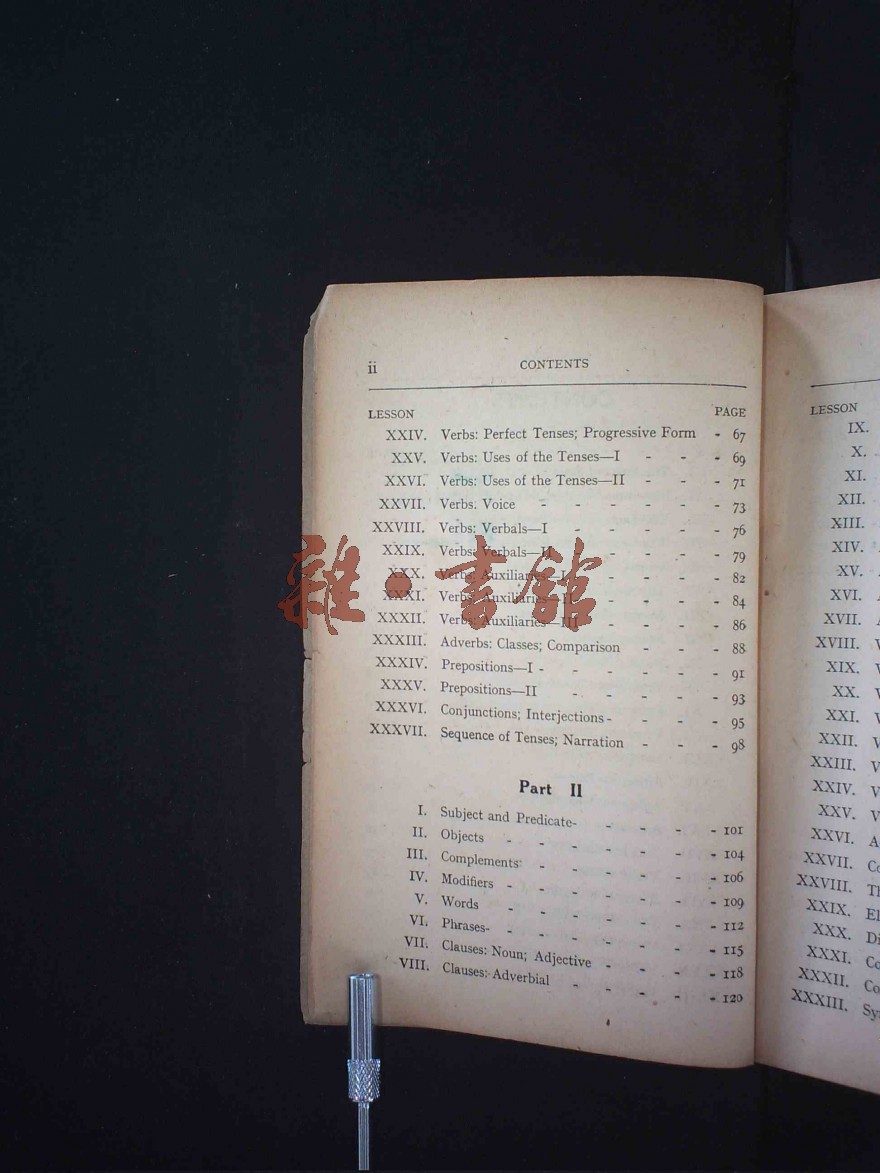 ii CONTENTS
LESSON PAGE
XXIV. Verbs: Perfect Tenses; Progressive Form - 67
XXV. Verbs: Uses of the Tenses—I - - - 69
XXVI. Verbs: Uses of the Tenses—II - - - 71
XXVII. Verbs: Voice - - - - - - 73
XXVIII. Verbs: Verbals—I - - - - - 76
XXIX. Verbs: Verbals—II - - - - 79
XXX. Verbs: Auxiliaries—I - - - - 82
XXXI. Verbs: Auxiliaries—II - - - - 84
XXXII. Verbs: Auxiliaries—III - - - - 86
雜·書館
XXXIII. Adverbs: Classes; Comparison - - - 88
XXXIV. Prepositions—I - - - - - - 91
XXXV. Prepositions—II - - - - - 93
XXXVI. Conjunctions; Interjections - - - - 95
XXXVII. Sequence of Tenses; Narration - - - 98
Part II
I. Subject and Predicate- - - - - 101
II. Objects - - - - - - - 104
III. Complements - - - - - - 106
IV. Modifiers - - - - - - - 109
V. Words - - - - - - - 112
VI. Phrases- - - - - - - 115
VII. Clauses: Noun; Adjective - - - - 118
VIII. Clauses: Adverbial - - - - - 120
LESSON
IX.
X.
XI.
XII.
XIII.
XIV.
XV.
XVI.
XVII.
XVIII.
XIX.
XX.
XXI.
XXII.
XXIII.
XXIV.
XXV.
XXVI.
XXVII.
XXVIII.
XXIX.
XXX.
XXXI.
XXXII.
XXXIII.